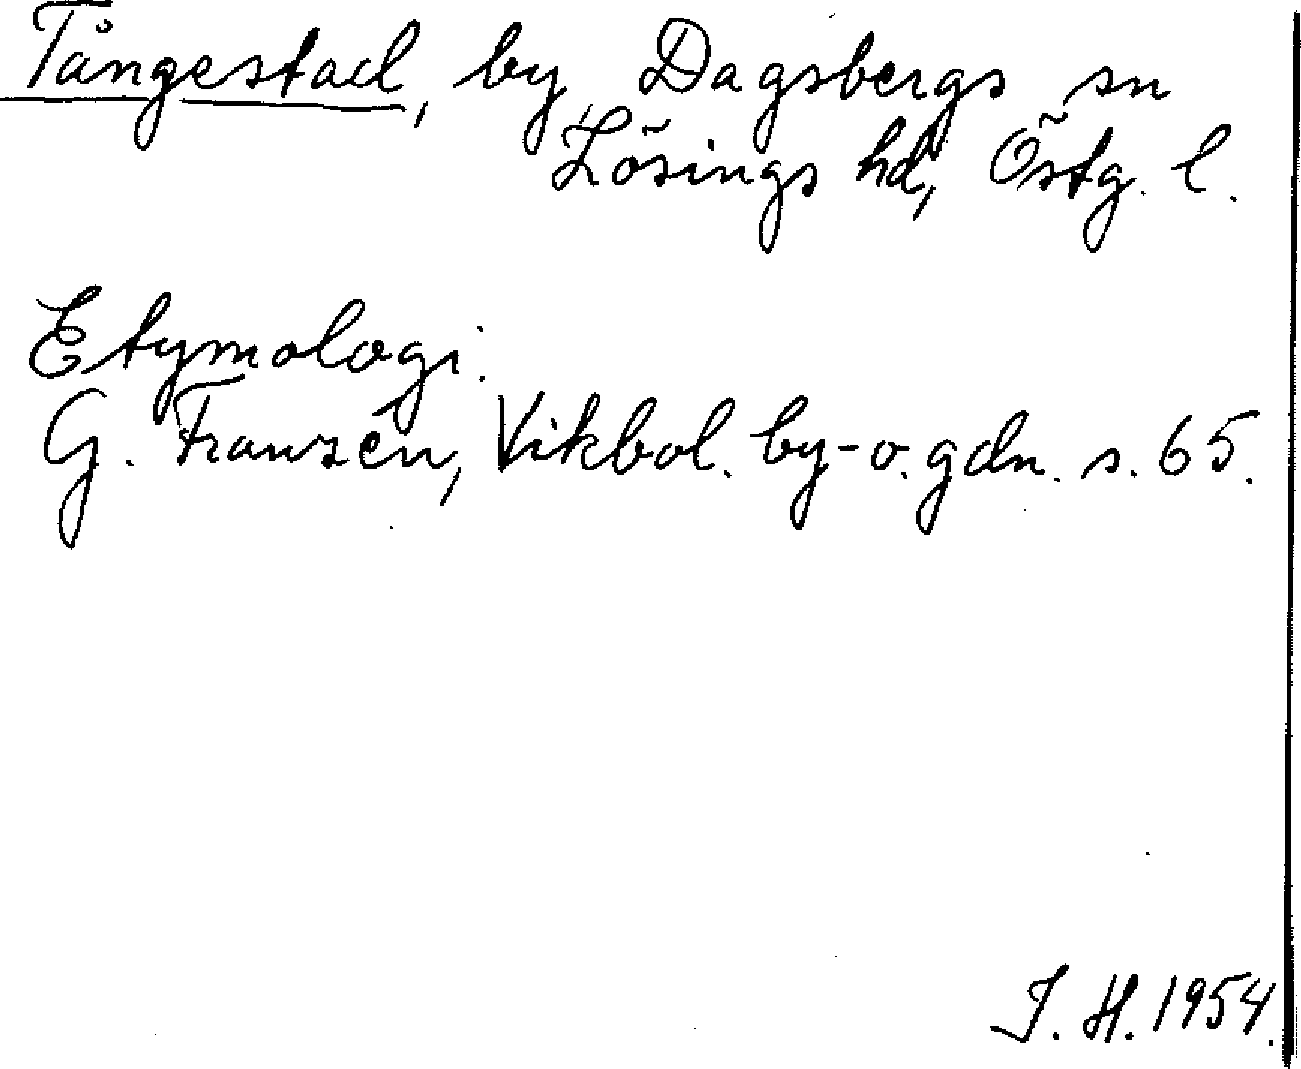 Tångestad, by Dagsbergs sn
Lösings hd, Östg. l.
Etymologi:
G. Franzén, Vikbol. by- o. gdn. s. 65.
J. H. 1954.